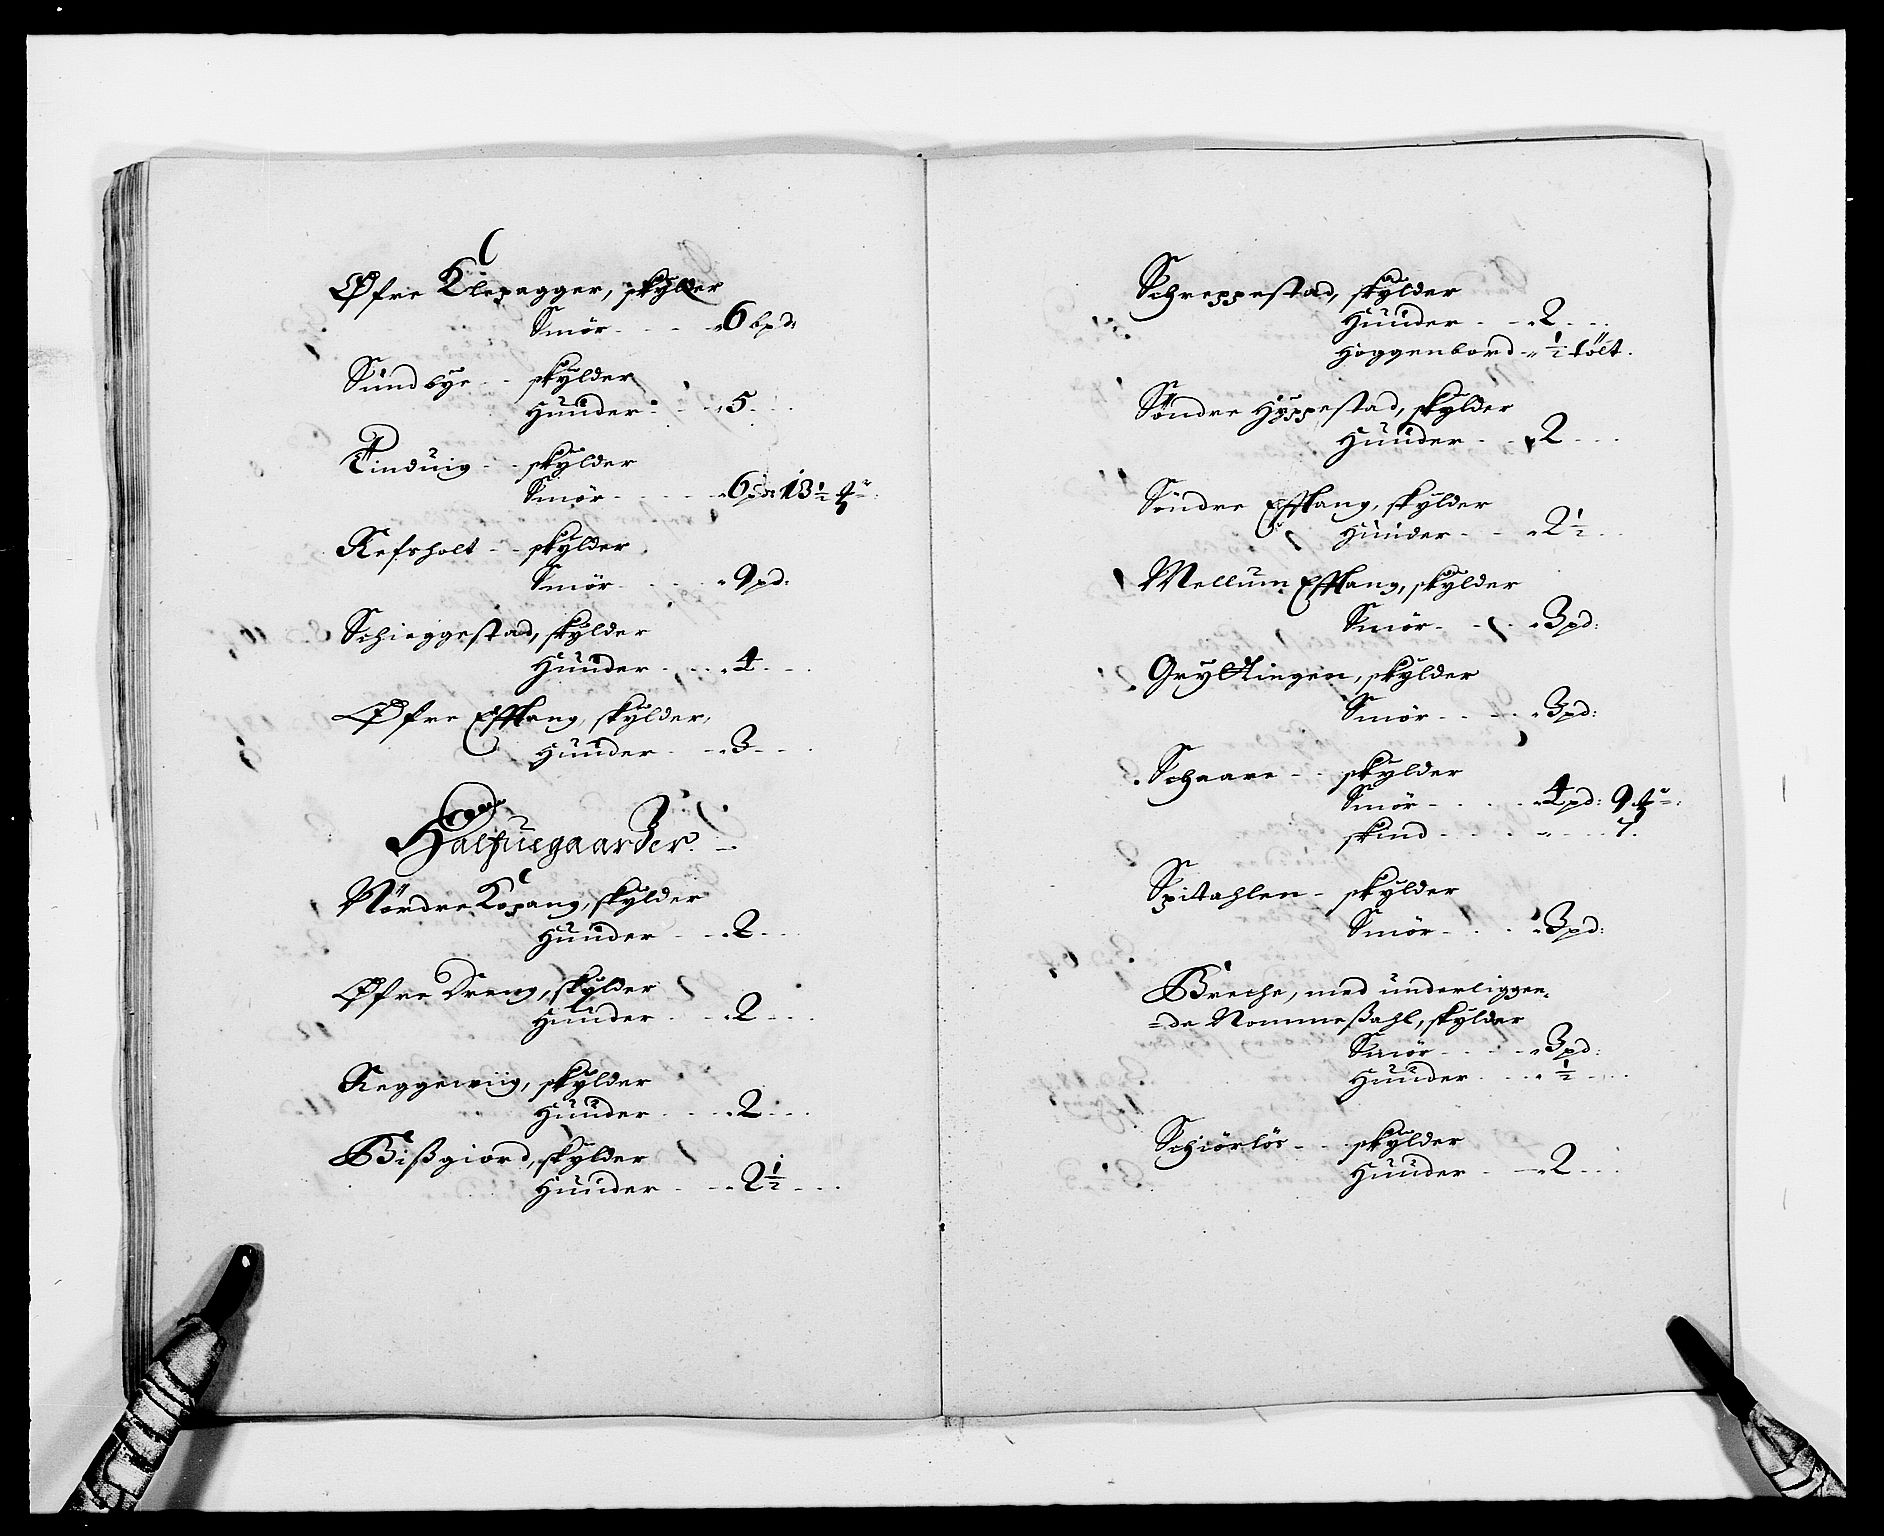 Øfre Klepagger, skylder
Smör - - - 6 bpd:
Sundbye - - skylder
Huuder - - - 5 - -
Tinduig - - skylder
Smör - - - - 6 pd: 13½
Refsholt - - skylder
Smör - - - 9 pd:
Schieggestad, skylder
Huuder - - - 4 - - -
Øfre Efftang, skylder,
Huuder - - 3 - - -
Halfuegaarder. -
Nördre Kopang, skylder
Huuder - - 2 - - -
Øfre Vreng, skylder
Huuder - - 2 - - -
Reggewiig, skylder
Huuder - - - 2 - - -
Bißgiord, skylder
Huuder - - 2½ - - -
Schreppestad, skylder
Huuder - - 2 - - -
Hoggenbord - ½ tölt.
Söndre Hyppestad, skylder
Huuder - - 2 - - -
Söndre Efftang, skylder
Huuder - - 2½ - -
Mellum Efftang, skylder
Smör - - - 3 pd:
Gryttingen, skylder
Smör - - - 3 pd:
Schaare - - skylder
Smör - - - - 4 pd: 9
skind - - - - - - 7.
Spitahlen - skylder
Smör - - - 3 pd:
Breche, med underliggen-
=de Nommeßahl, skylder
Smör - - - - 3 pd:
Huuder - - - ½ - - -
Schiörlös - - skylder
Huuder - - 2 - - -